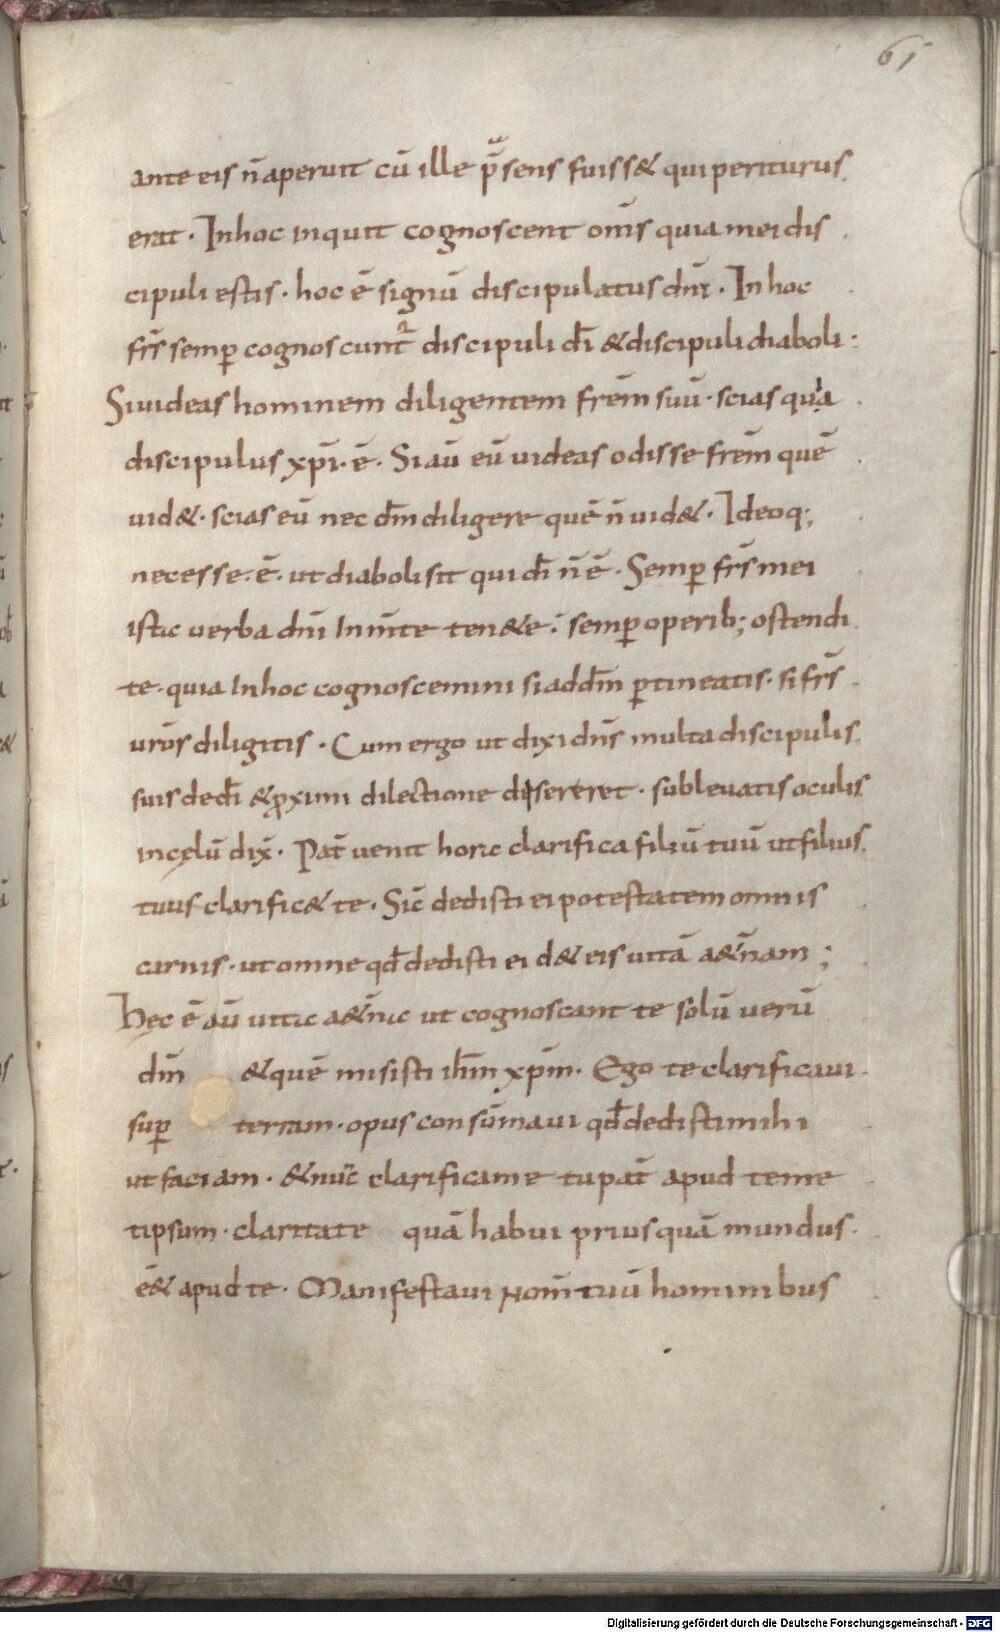 61
ante eis n̄ aperuit cū ille p̄sens fuiss& qui periturus
erat · In hoc inquit cognoscent om̄s quia mei dis
cipuli estis · hoc ē signū discipulatus dn̄i · In hoc
frīs semp̱ cognoscunt̄ discipuli dī & discipuli diaboli ·
Si uideas hominem diligentem frēm suū · scias quia
discipulus xp̄i · ē · Si aū eū uideas odisse frēm quē
uid& · scias eū nec dm̄ diligere quē n̄ uid& · Ideoq;
necesse · ē · ut diaboli sit qui dī n̄ ē · Semp̱ frs̄ mei
istac uerba dn̄i In m̄te ten&e · semp̱ operib; ostendi
te · quia In hoc cognoscemini si ad dm̄ p̱tineatis · si frs̄
ur̄os diligitis · Cum ergo ut dixi dn̄s multa discipulis
suis de dī & ꝓximi dilectione disereret · subleuatis oculis
in cęlū dix̄ · Pat̄ uenit hora clarifica filiū tuū ut filius
tuus clarific& te · Sic̄ dedisti ei potestatem omnis
carnis · ut omne qd̄ dedisti ei d& eis uitā a&n̄am ;
Hęc ē aū uita a&n̄a ut cognoscant te solū uerū
dm̄ & quē misisti ih̄m xp̄m · Ego te clarificaui
sup̱ terram · opus consūmaui qd̄ dedisti mihi
ut faciam · & nūc clarifica me tu pat̄ apud teme
tipsum · claritate quā habui priusquā mundus
ē& apud te · Manifestaui nom̄ tuū hominibus
Digitalisierung gefördert durch die Deutsche Forschungsgemeinschaft - DFG